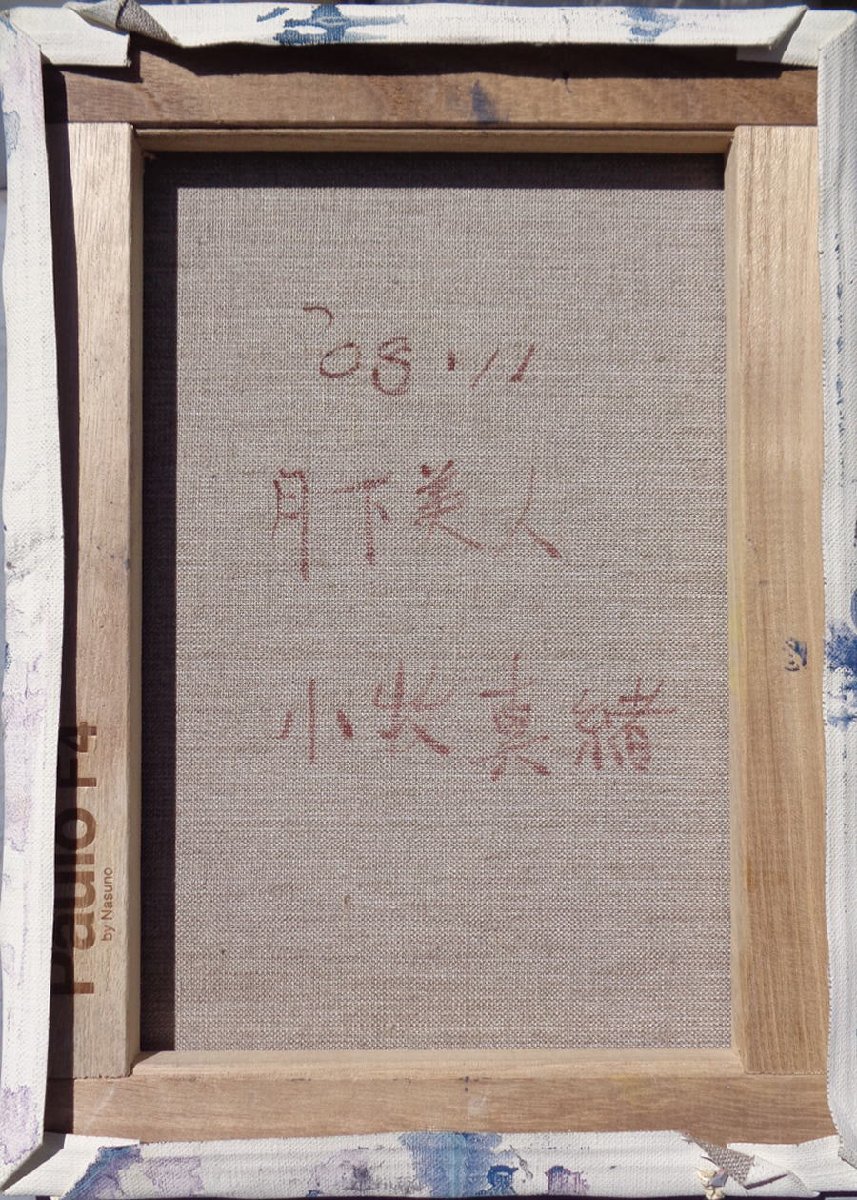 '08.11
月下美人
小牧真緒
Paulo F4
by Nasuno